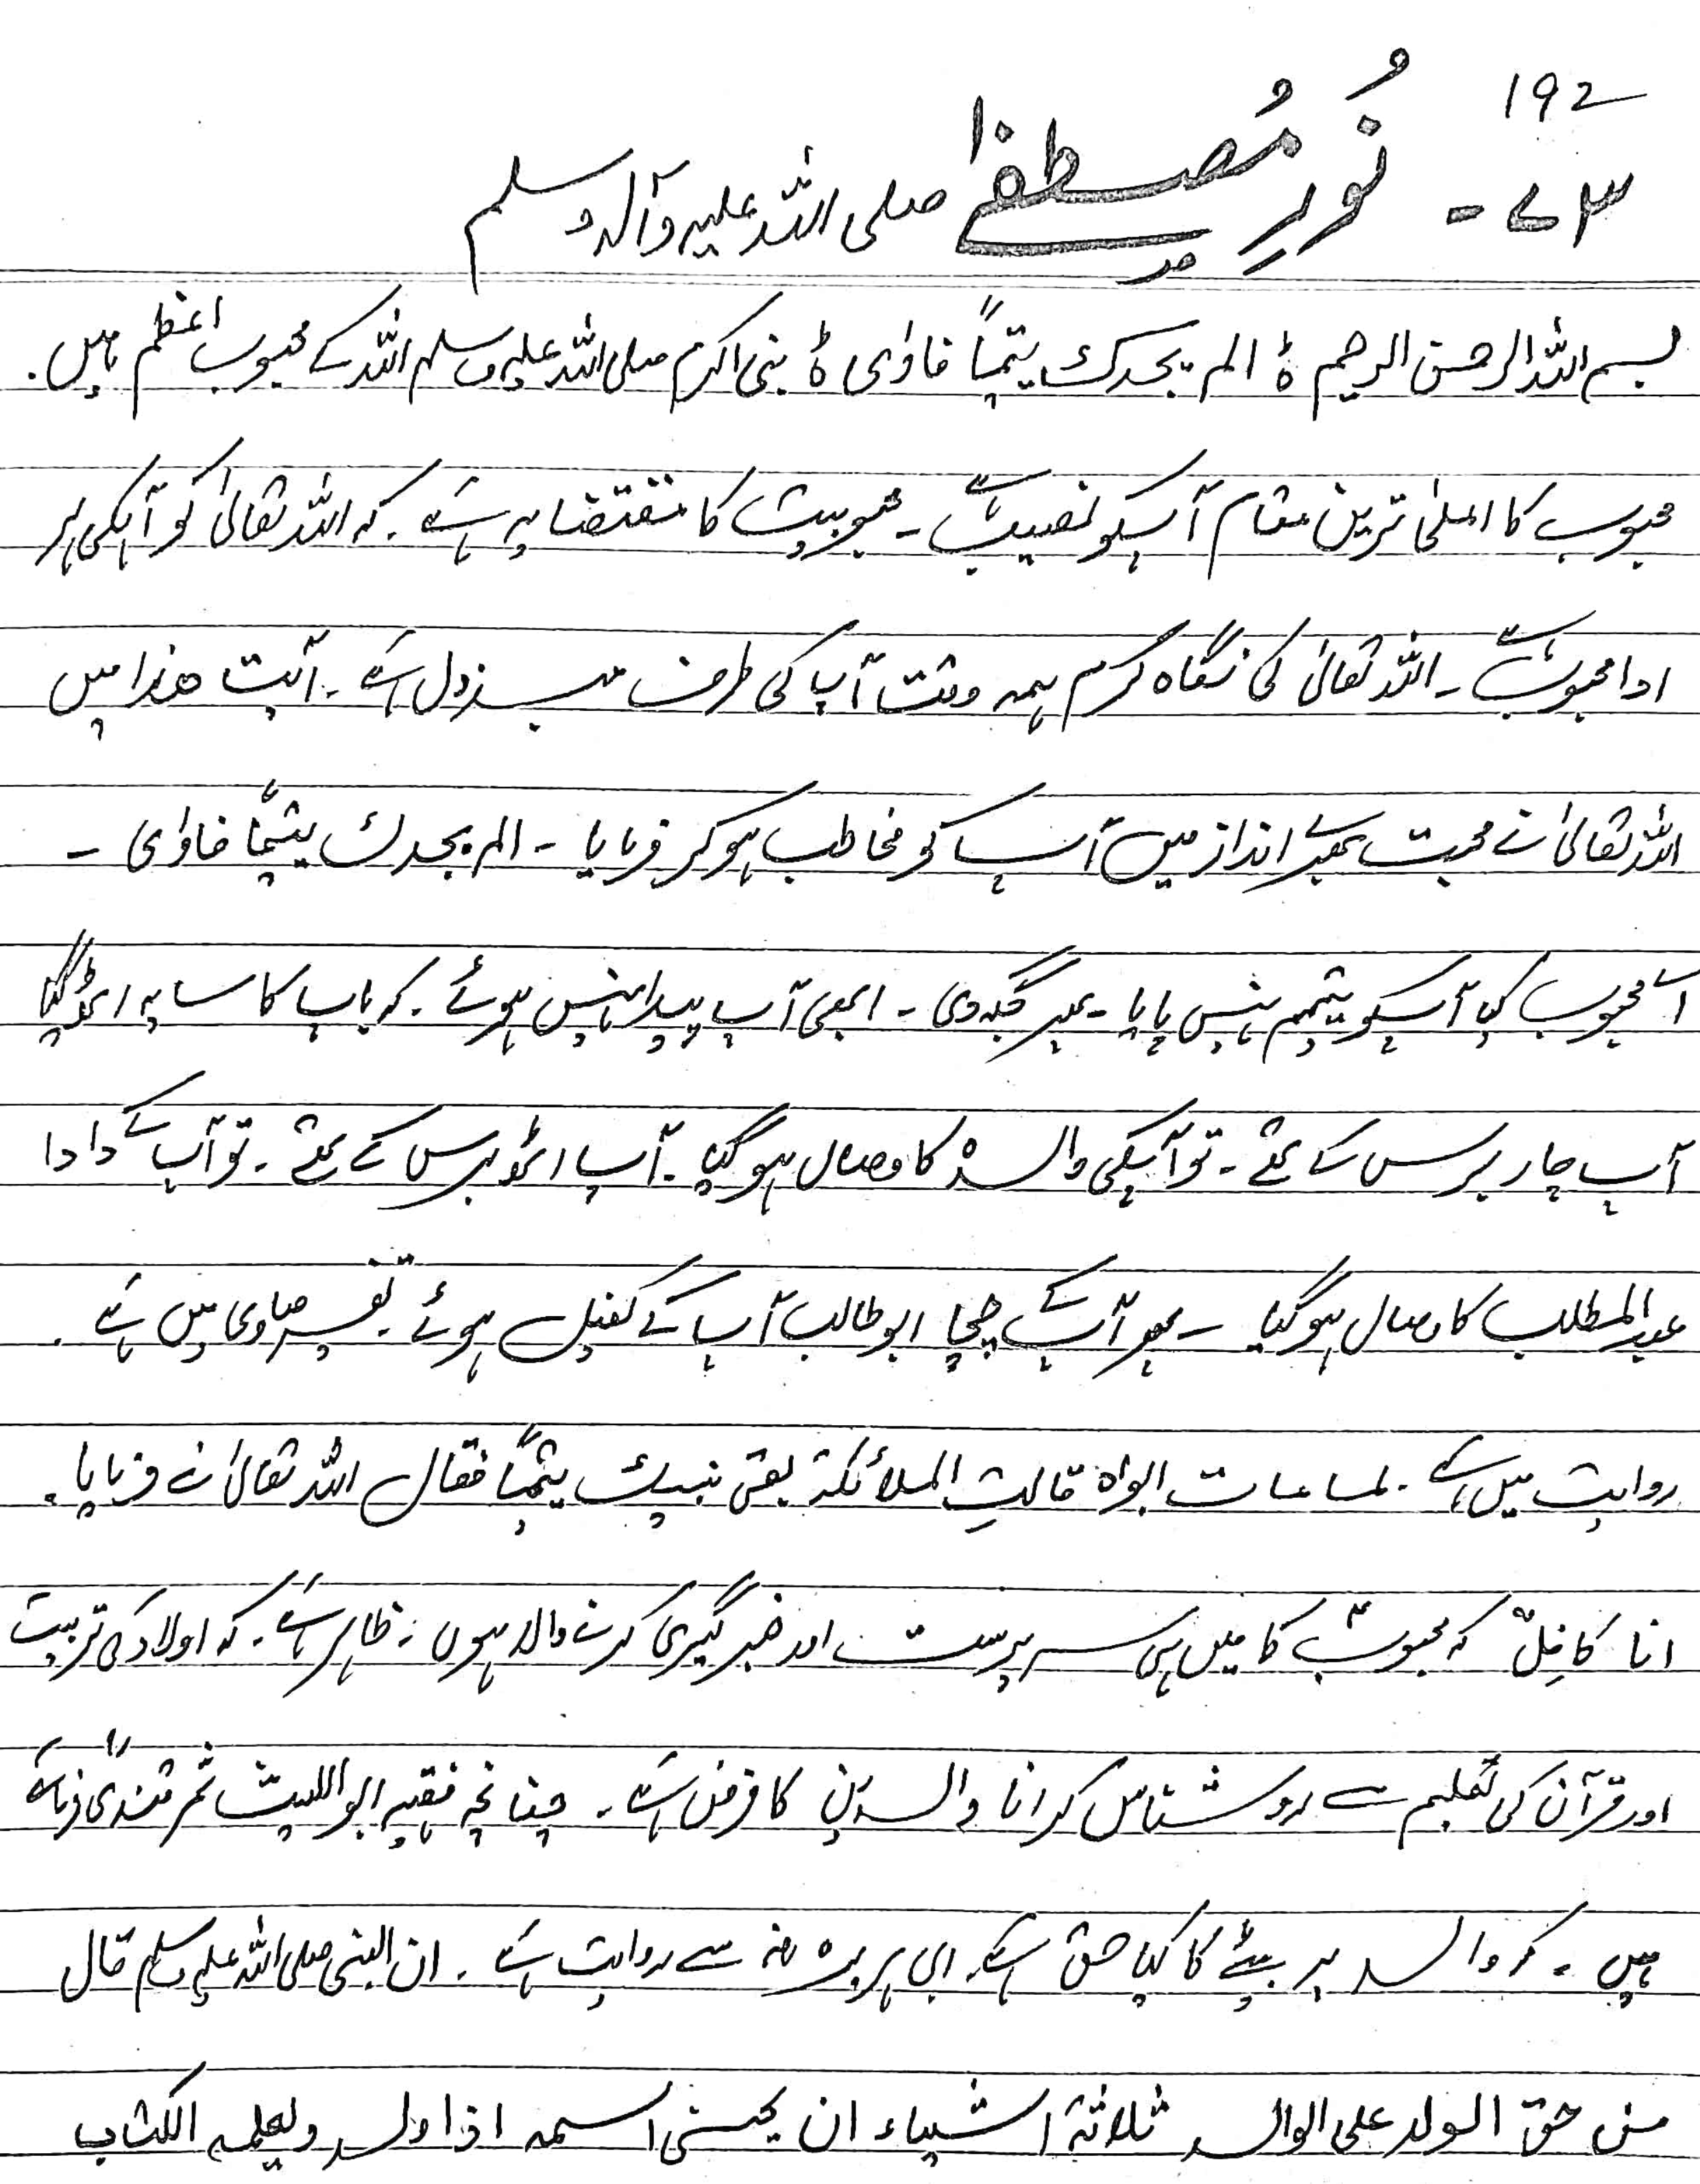 192
۷۳ - نُورِ مُصطفےٰ صلی اللہ علیہ وآلہ وسلم
بسم اللہ الرحمن الرحیم ہ الم یجدک یتیماً فاوٰی ہ نبی اکرم صلی اللہ علیہ وسلم اللہ کے محبوب اعظم ہیں.
محبوب کا اعلیٰ ترین مقام آپکو نصیب ہے - محبوبیت کا مقتضا یہ ہے. کہ اللہ تعالیٰ کو آپکی ہر
ادا محبوب ہے - اللہ تعالیٰ کی نگاہ کرم ہمہ وقت آپ کی طرف مبذول ہے. آیت ھذا میں
اللہ تعالیٰ نے محبت بھرے انداز میں آپ کو مخاطب ہو کر فرمایا - الم یجدک یتیماً فاوٰی -
اے محبوب کیا آپکو یتیم نہیں پایا - پھر جگہ دی - ابھی آپ پیدا نہیں ہوئے. کہ باپ کا سایہ اٹھ گیا
آپ چار برس کے تھے - تو آپکی والدہ کا وصال ہو گیا - آپ اٹھ برس کے تھے - تو آپ کے دادا
عبدالمطلب کا وصال ہو گیا - پھر آپ کے چچا ابو طالب آپ کے کفیل ہوئے. تفسیر صاوی میں ہے.
روایت میں ہے. لما مات ابواہ قالتِ الملائکۃ بقی نبیک یتیماً فقال اللہ تعالیٰ نے فرمایا.
انا کافِلٌ کہ محبوب کا میں ہی سرپرست اور خبر گیری کرنے والا ہوں. ظاہر ہے. کہ اولاد کی تربیت
اور قرآن کی تعلیم سے روشناس کرانا والدین کا فرض ہے - چنانچہ فقیہہ ابواللیث ثمرقندی فرماتے
ہیں. کہ والد پر بیٹے کا کیا حق ہے. ابی ہریرہ رضہ سے روایت ہے. ان النبی صلی اللہ علیہ وسلم قال
من حق الولد علی الوالد ثلاثۃ اشیاء ان یحسن اسمہ اذا ولد و یعلمہ الکتاب